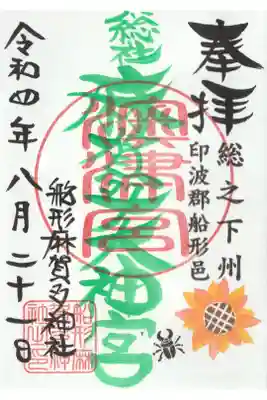 奉拝
総之下州
印波郡船形邑
総社
大神宮
舩形麻賀多神社
令和四年八月二十一日